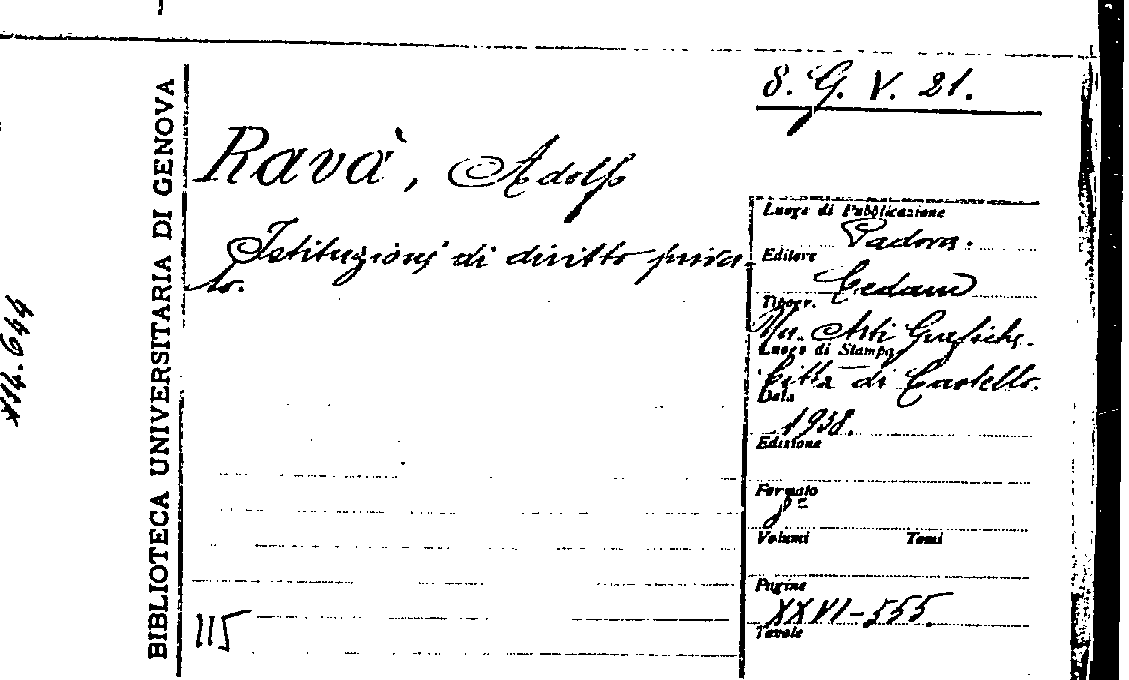 8. G. V. 21.
BIBLIOTECA UNIVERSITARIA DI GENOVA
Ravà, Adolfo
Istituzioni di diritto priva-
to.
Luogo di Pubblicazione
Padova.
Editore
Cedam
Tipogr.
Arti Grafiche.
Luogo di Stampa
Città di Castello.
Data
1938.
Edizione
Formato
8°
Volumi Tomi
Pagine
XXVI-555.
Tavole
115